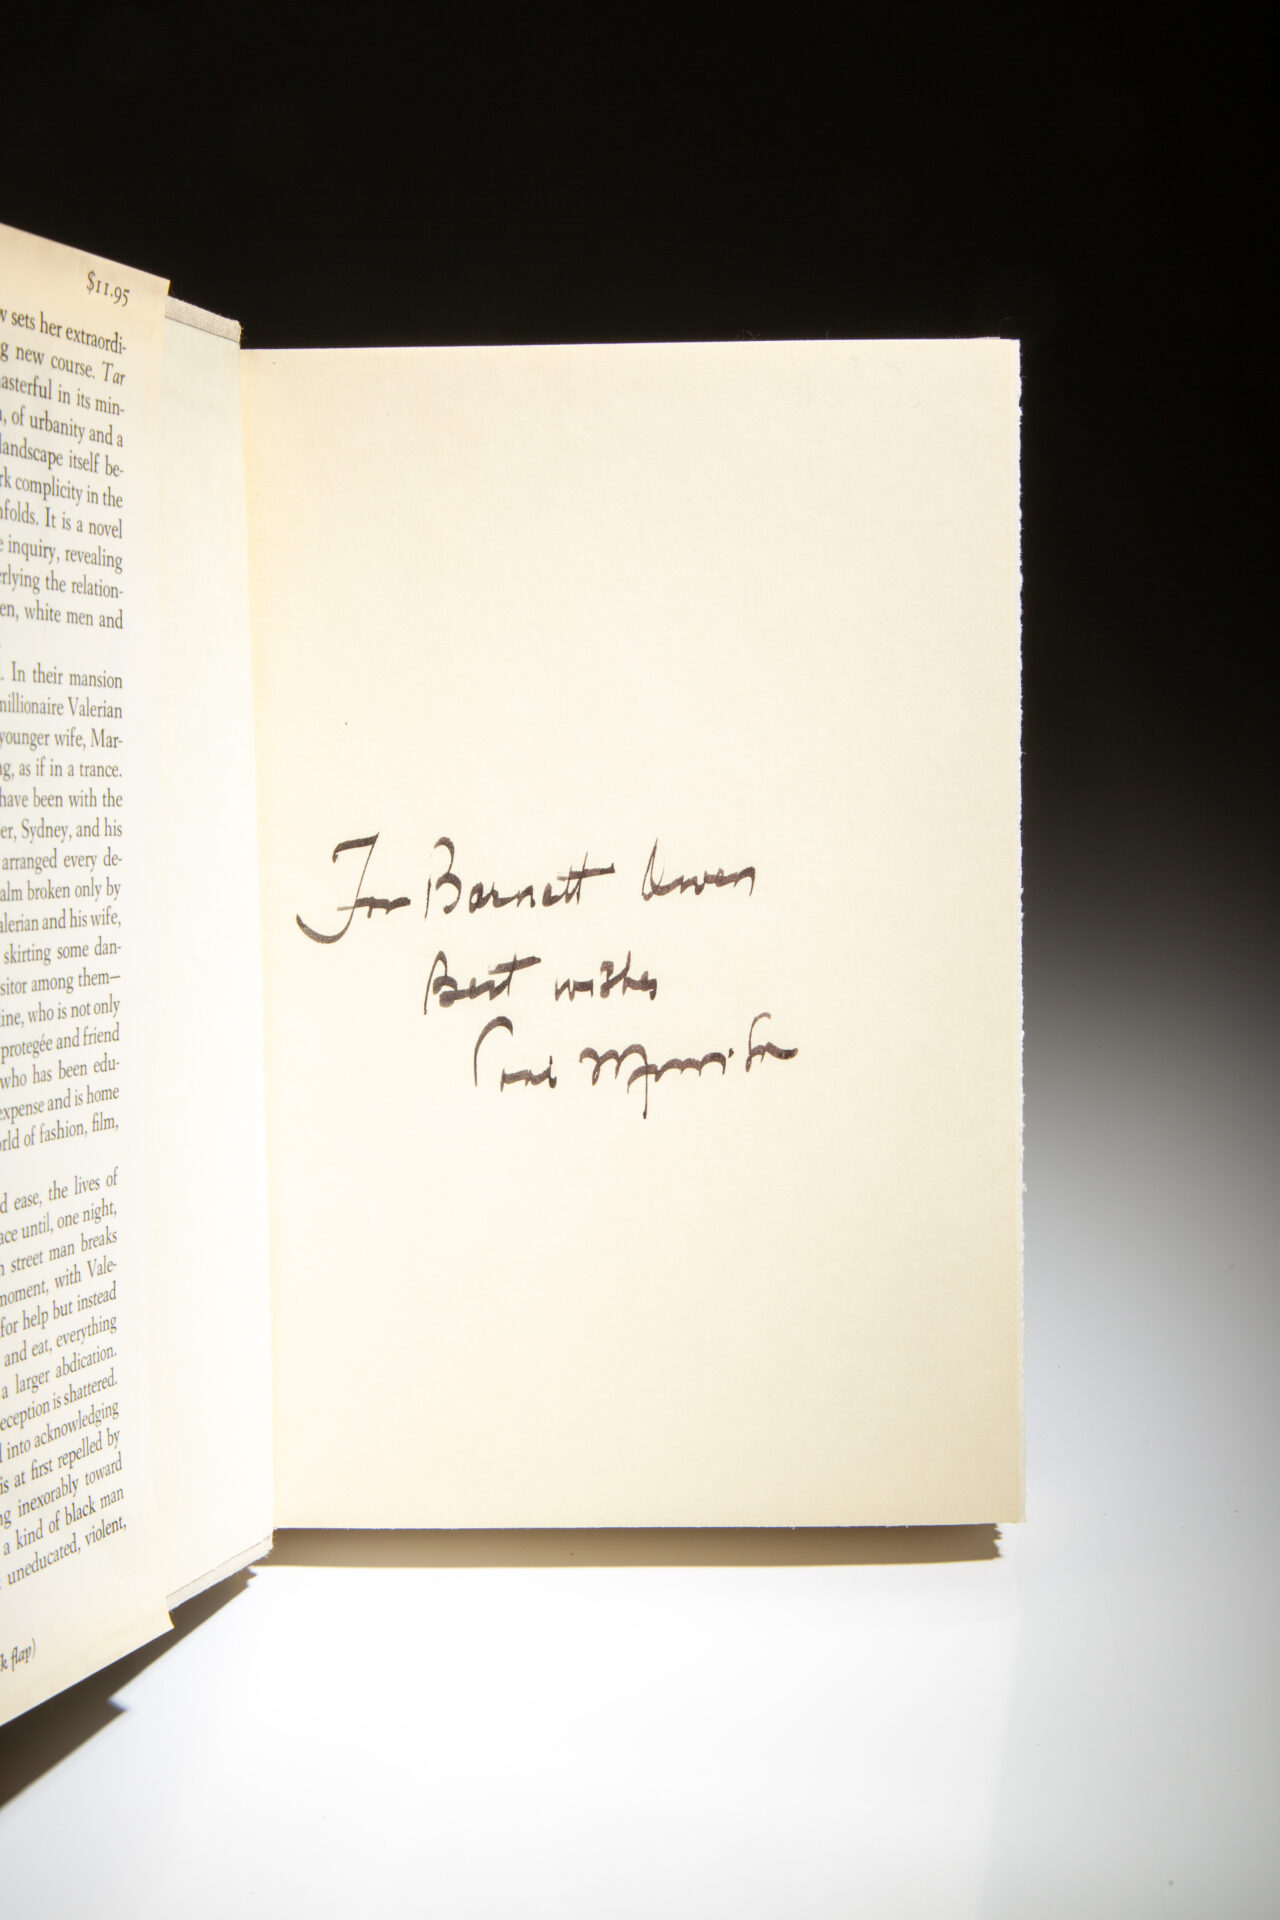 $11.95
sets her extraordi-
new course. Tar
asterful in its min-
, of urbanity and a
landscape itself be-
rk complicity in the
nfolds. It is a novel
e inquiry, revealing
erlying the relation-
en, white men and
. In their mansion
millionaire Valerian
younger wife, Mar-
ng, as if in a trance.
have been with the
er, Sydney, and his
arranged every de-
alm broken only by
alerian and his wife,
skirting some dan-
sitor among them—
ine, who is not only
protegée and friend
who has been edu-
expense and is home
orld of fashion, film,
d ease, the lives of
ace until, one night,
n street man breaks
moment, with Vale-
for help but instead
and eat, everything
a larger abdication.
eception is shattered.
into acknowledging
is at first repelled by
ng inexorably toward
a kind of black man
uneducated, violent,
k flap)
For Barnett Owen
Best wishes
Toni Morrison